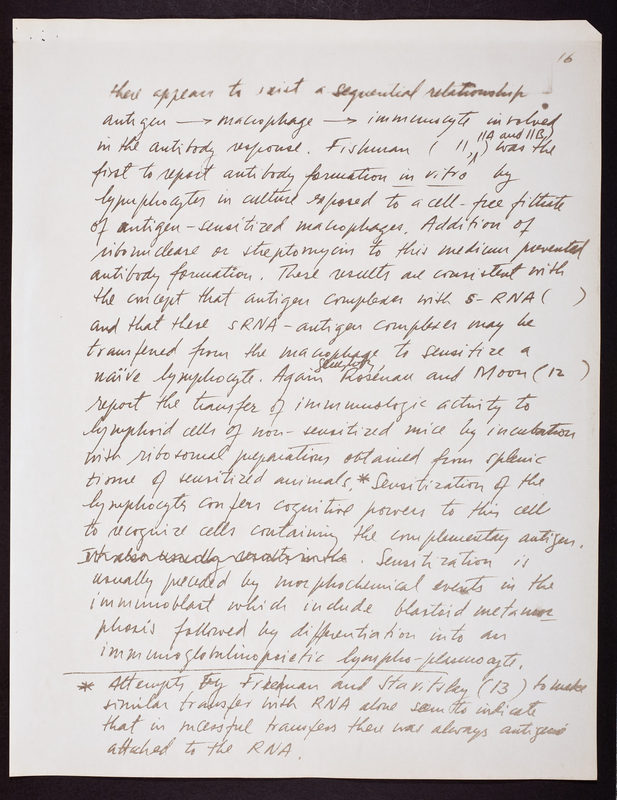 16
there appears to exist a sequential relationship
antigen → macrophage → immunocyte involved
in the antibody response. Fishman ( 11, 11A and 11B) was the
first to report antibody formation in vitro by
lymphocytes in culture exposed to a cell-free filtrate
of antigen-sensitized macrophages. Addition of
ribonuclease or streptomycin to this medium prevented
antibody formation. These results are consistent with
the concept that antigen complexes with s-RNA ( )
and that these sRNA-antigen complexes may be
transferred from the macrophage to sensitize a
naïve lymphocyte. Again Rosenau and Moon (12 )
report the transfer of immunologic activity to
lymphoid cells of non-sensitized mice by incubation
with ribosomal preparations obtained from splenic
tissue of sensitized animals.* Sensitization of the
lymphocyte confers cognitive powers to this cell
to recognize cells containing the complementary antigen.
It also usually results in the. Sensitization is
usually preceded by morphochemical events in the
immunoblast which include blastoid metamor-
phosis followed by differentiation into an
immunoglobulinopoietic lympho-plasmocyte.
* Attempts by Friedman and Stavitsky (13) to make
similar transfer with RNA alone seem to indicate
that in successful transfers there was always antigen
attached to the RNA.